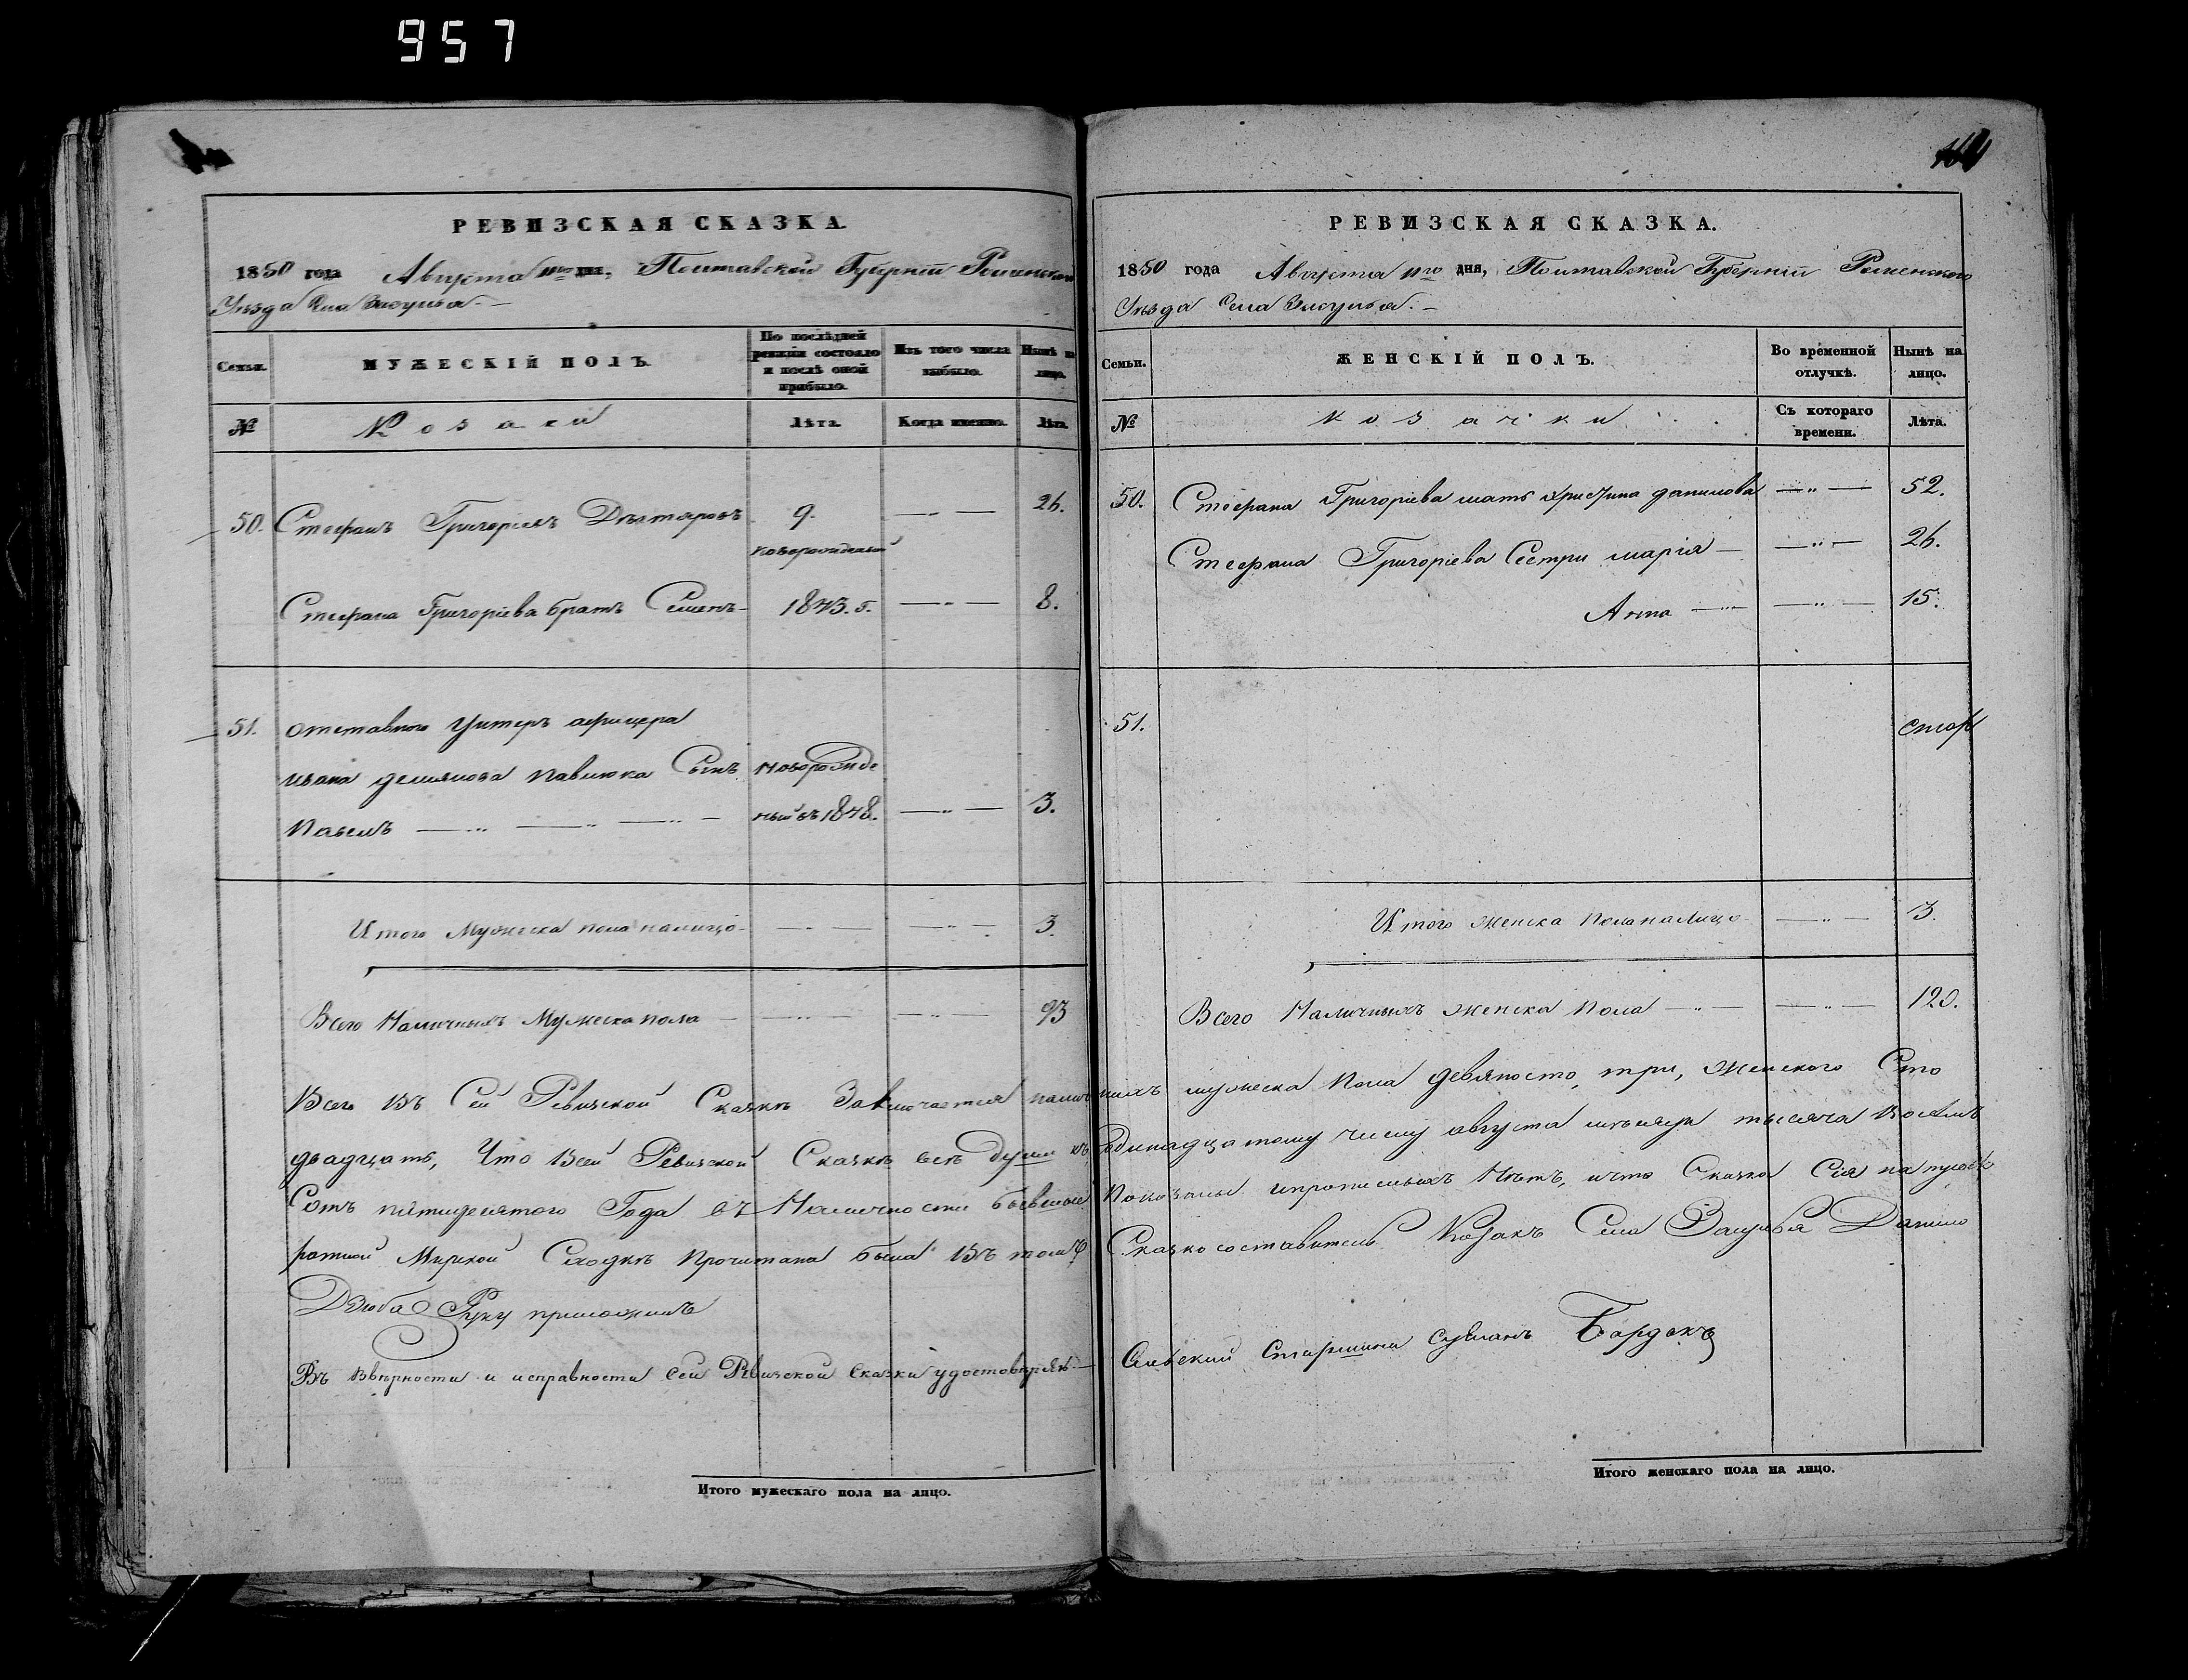 957
РЕВИЗСКАЯ СКАЗКА.
1850 года Августа 11го дня, Полтавской Губерніи Роменского
Уѣзда Села Засулья.—
Семьи. МУЖЕСКІЙ ПОЛЪ. По послѣдней ревизіи состояло и послѣ оной прибыло. Изъ того числа выбыло. Нынѣ на лицо.
№ Козаки Лѣта. Когда именно. Лѣта.
50. Стефанъ Григоріевъ Дегтяровъ 9. —"— 26.
новорожденый
Стефана Григоріева братъ Семенъ— 1843. г. —"— 8.
51. отставного Унтеръ афицера
ивана демянова павлюка Сынъ новорожде
павелъ —"— —"— —"— ный въ 1848. —"— 3.
Итого Мужеска пола налицо— —"— —"— 3.
Всего Наличныхъ Мужеска пола —"— —"— 93
РЕВИЗСКАЯ СКАЗКА.
1850 года Августа 11го дня, Полтавской Губерніи Роменского
Уѣзда Села Засулья.—
Семьи. ЖЕНСКІЙ ПОЛЪ. Во временной отлучкѣ. Нынѣ на лицо.
№ козачки Съ котораго времени. Лѣта.
50. Стефана Григоріева мать христина данилова —"— 52.
Стефана Григоріева Сестри марія— —"— 26.
Анна —"— —"— 15.
51.
Итого женска пола налицо —"— 3.
Всего Наличныхъ женска пола —"— —"— 120.
Всего въ Сей Ревизской Сказкѣ Заключается налич ныхъ мужеска пола девяносто, три, женского Сто
двадцать, Что всей Ревизской Сказкѣ всѣ души къ одинадцатому числу августа мѣсяца тысяча восемъ
Сотъ пятидесятого Года въ Наличности бывшые показаны ипрописныхъ Нѣтъ, ичто Сказка Сія на
мирской Сходкѣ прочитана была въ томъ Сказкосоставитель Козакъ Села Засулья Данило
Дзюба Руку приложилъ
Въ вѣрности и исправности сей Ревизской Сказки удостовѣряю— Сельский Старшина Бардакъ
Итого мужескаго пола на лицо.
Итого женскаго пола на лицо.